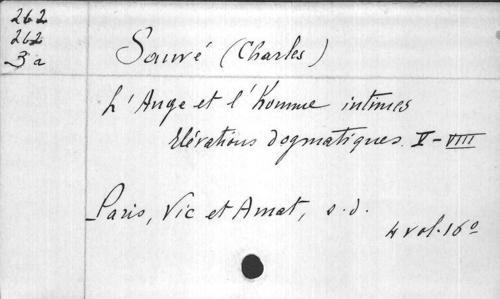 262
262
3 a
Sauvé (Charles)
L'Ange et l'Homme intimes
Elévations dogmatiques. V-VIII
Paris, Vic et Amat, s.d.
4 vol. 16º